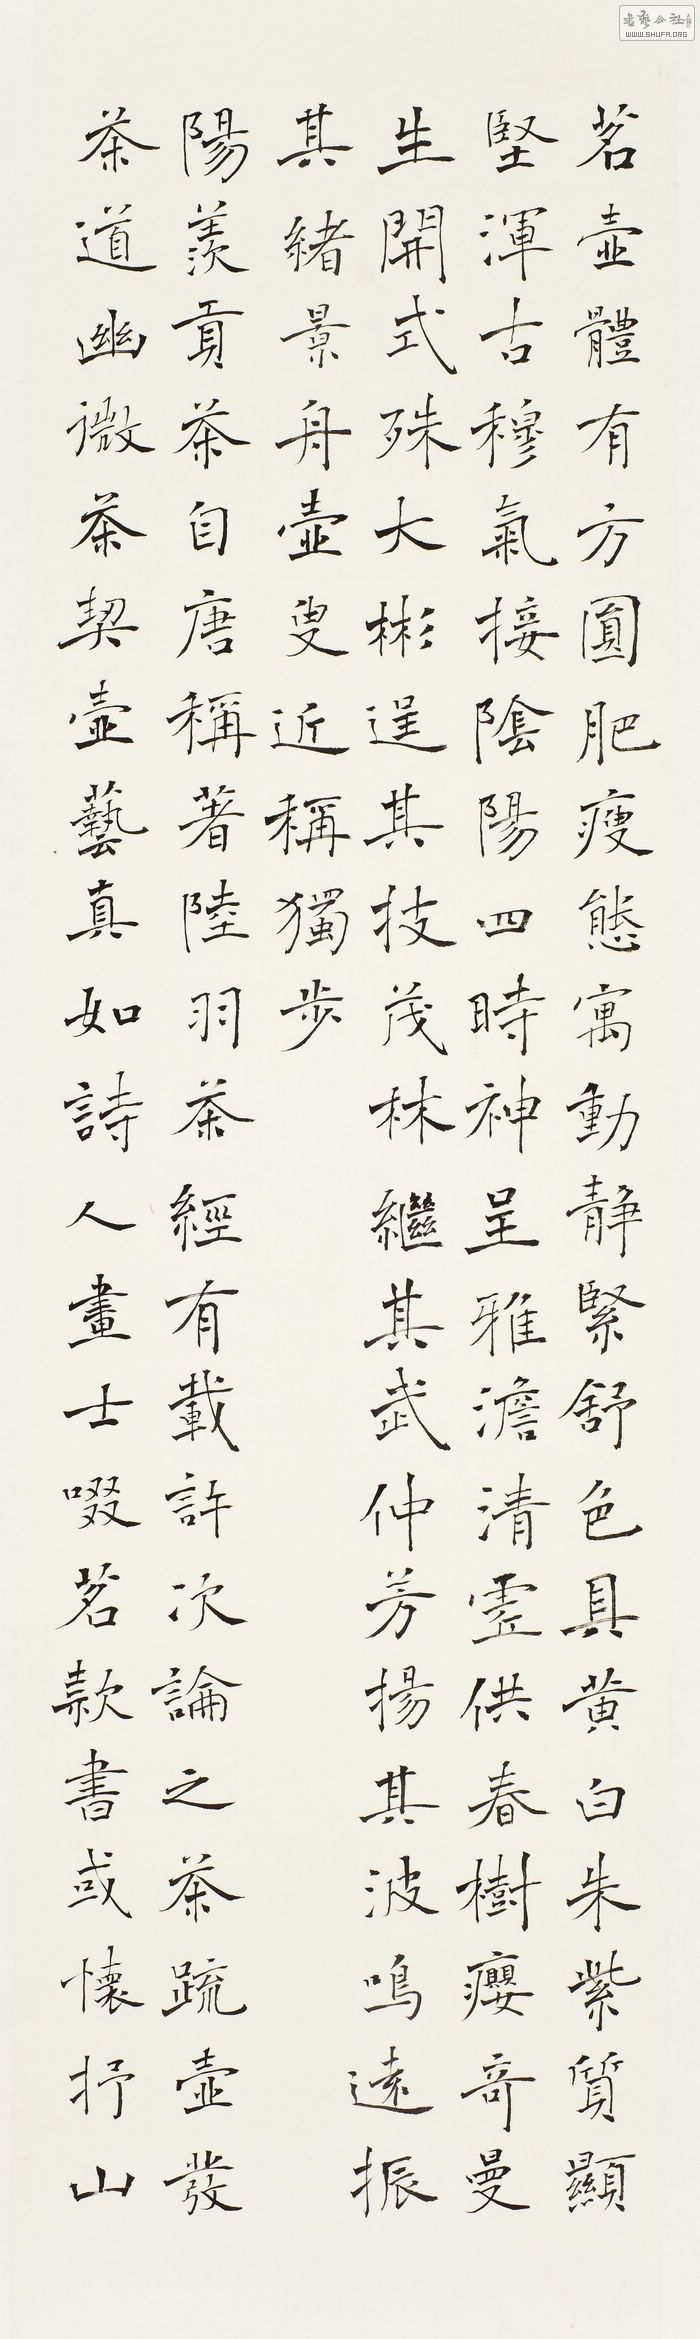 茗壺體有方圓肥瘦態寓動靜緊舒色具黄白朱紫質顯
堅渾古穆氣接陰陽四時神呈雅澹清靈供春樹癭奇曼
生開式殊大彬逞其技茂林繼其武仲芳揚其波鳴遠振
其緒景舟壺叟近稱獨步
陽羡貢茶自唐稱著陸羽茶經有載許次論之茶疏壺發
茶道幽微茶契壺藝真如詩人畫士啜茗款書或懷抒山
書藝公社
WWW.SHUFA.ORG